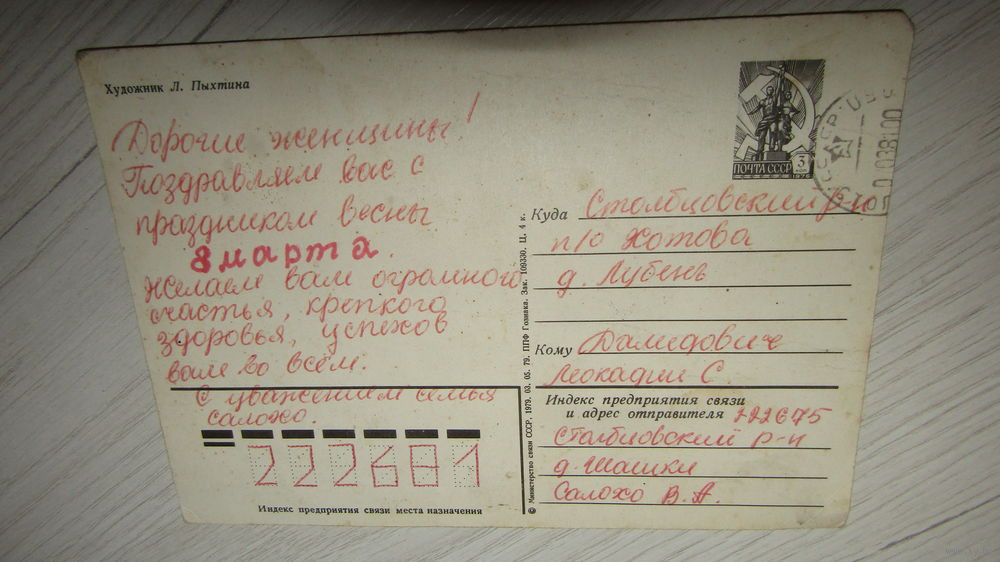 Художник Л. Пыхтина
Дорогие женщины!
Поздравляем вас с
праздником весны
8 марта.
желаем вам огромного
счастья, крепкого
здоровья, успехов
вам во всём.
С уважением семья
Салохо.
222681
Индекс предприятия связи места назначения
ПОЧТА СССР 3
1976
© Министерство связи СССР, 1979. 03. 05. 79. ППФ Гознака. Зак. 109330. Ц. 4 к.
Куда Столбцовский р-н
п/о Хотова
д. Лубень
Кому
Леокадии С.
Индекс предприятия связи
и адрес отправителя 222675
Столбцовский р-н
д. Шашки
Салохо В. А.